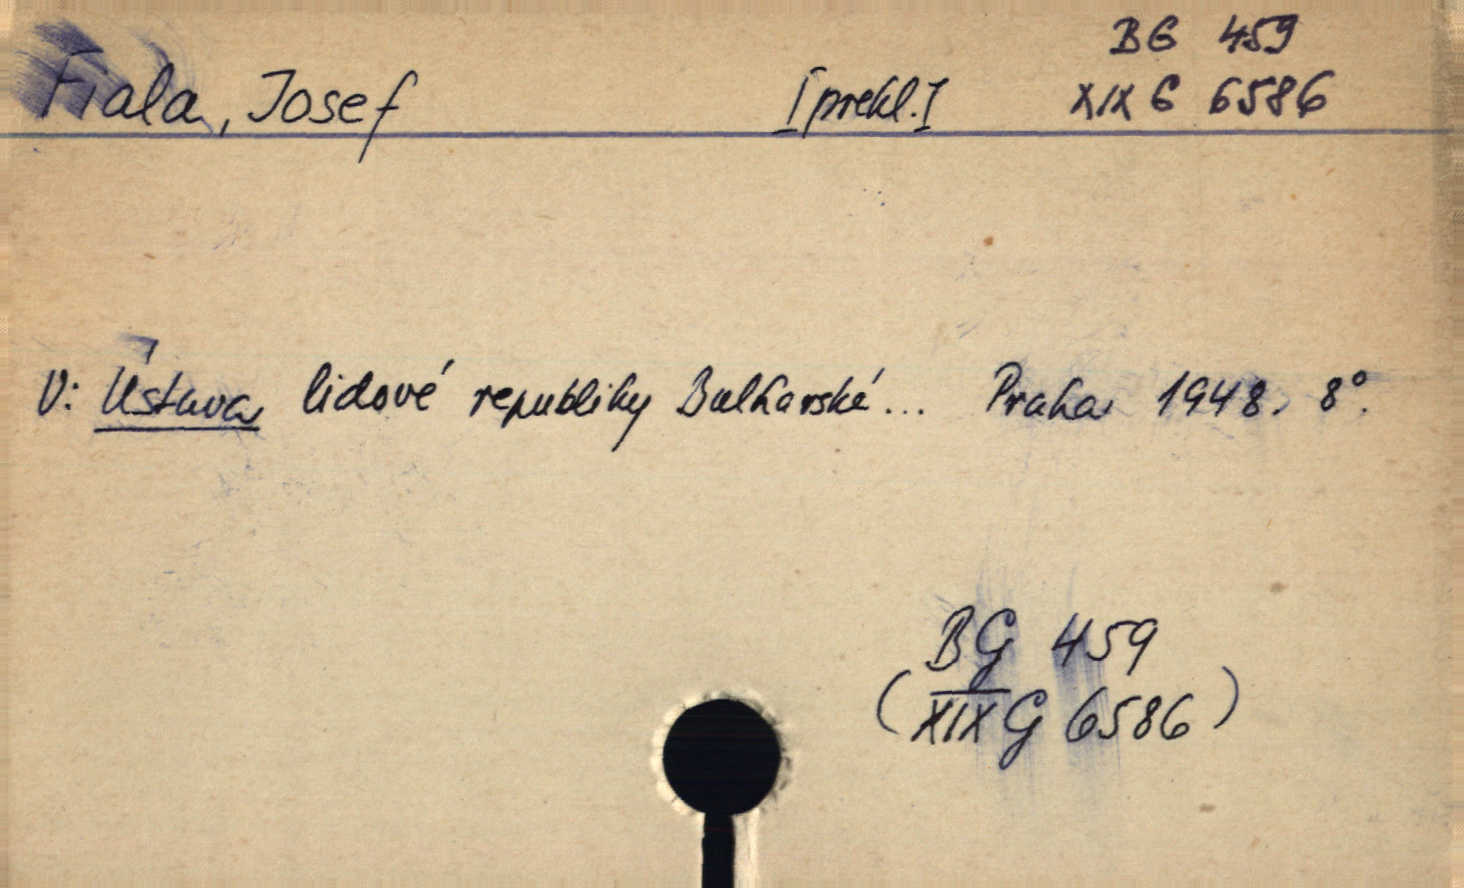 BG 459
Fiala, Josef [překl.] XIX G 6586
V: Ústava lidové republiky Bulharské... Praha 1948. 8°.
BG 459
(XIX G 6586)